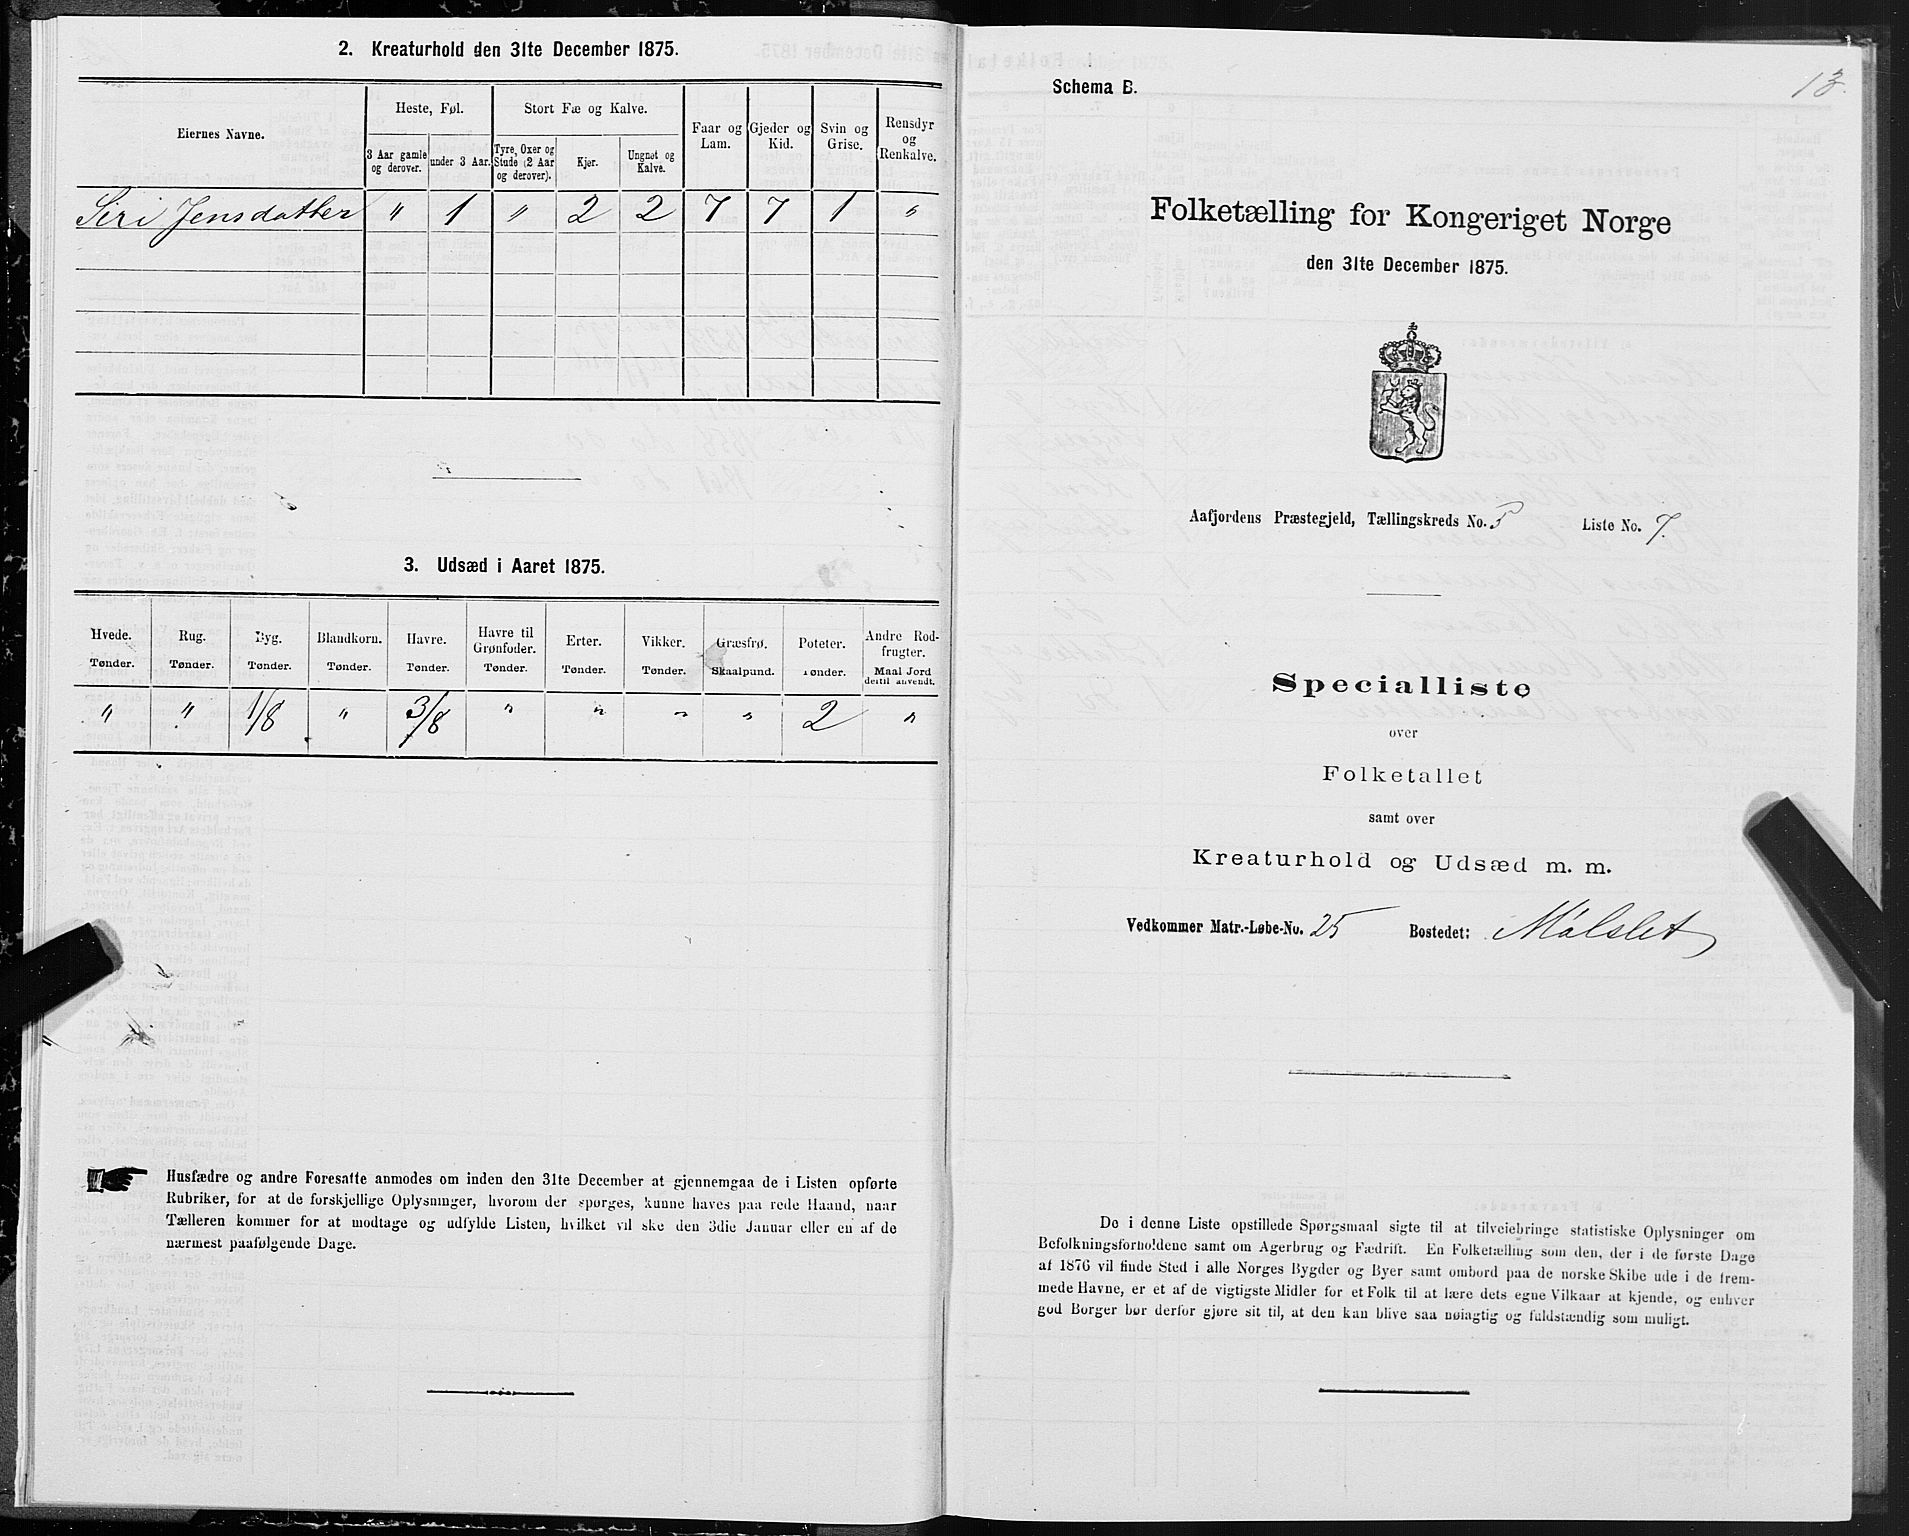 2. Kreaturhold den 31te December 1875.
Eiernes Navne.
Heste, Føl.
3 Aar gamle og derover.
under 3 Aar.
Stort Fæ og Kalve.
Tyre, Oxer og Stude (2 Aar og derover).
Kjør.
Ungnøt og Kalve.
Faar og Lam.
Gjeder og Kid.
Svin og Grise.
Rensdyr og Renkalve.
Siri Jensdatter " 1 " 2 2 7 7 1 "
3. Udsæd i Aaret 1875.
Hvede. Rug. Byg. Blandkorn. Havre. Havre til Grønfoder. Erter. Vikker. Græsfrø. Poteter. Andre Rodfrugter.
Tønder. Tønder. Tønder. Tønder. Tønder. Tønder. Tønder. Tønder. Skaalpund. Tønder. Maal Jord dertil anvendt.
" " 1/8 " 3/8 " " " " 2 "
Husfædre og andre Foresatte anmodes om inden den 31te December at gjennemgaa de i Listen opførte
Rubriker, for at de forskjellige Oplysninger, hvorom der spørges, kunne haves paa rede Haand, naar
Tælleren kommer for at modtage og udfylde Listen, hvilket vil ske den 3die Januar eller en af de
nærmest paafølgende Dage.
13.
Schema B.
Folketælling for Kongeriget Norge
den 31te December 1875.
Aafjordens Præstegjeld, Tællingskreds No. 5 Liste No. 7.
Specialliste
over
Folketallet
samt over
Kreaturhold og Udsæd m. m.
Vedkommer Matr.-Løbe-No. 25 Bostedet: Målslet
De i denne Liste opstillede Spørgsmaal sigte til at tilveiebringe statistiske Oplysninger om
Befolkningsforholdene samt om Agerbrug og Fædrift. En Folketælling som den, der i de første Dage
af 1876 vil finde Sted i alle Norges Bygder og Byer samt ombord paa de norske Skibe ude i de frem-
mede Havne, er et af de vigtigste Midler for et Folk til at lære dets egne Vilkaar at kjende, og enhver
god Borger bør derfor gjøre sit til, at den kan blive saa nøiagtig og fuldstændig som muligt.